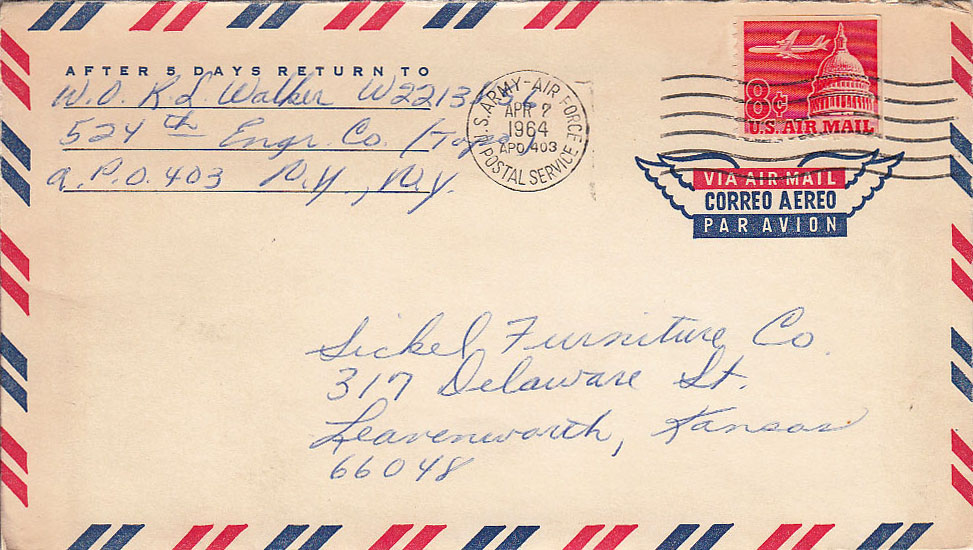 AFTER 5 DAYS RETURN TO
W.O. K L Walker
524th Engr. Co. (Topo)
A.P.O. 403 N.Y., N.Y.
U.S. ARMY-AIR FORCE
APR 7
1964
APO 403
POSTAL SERVICE
8¢
U.S. AIR MAIL
VIA AIR MAIL
CORREO AEREO
PAR AVION
Sickel Furniture Co.
317 Delaware St.
Leavenworth, Kansas
66048